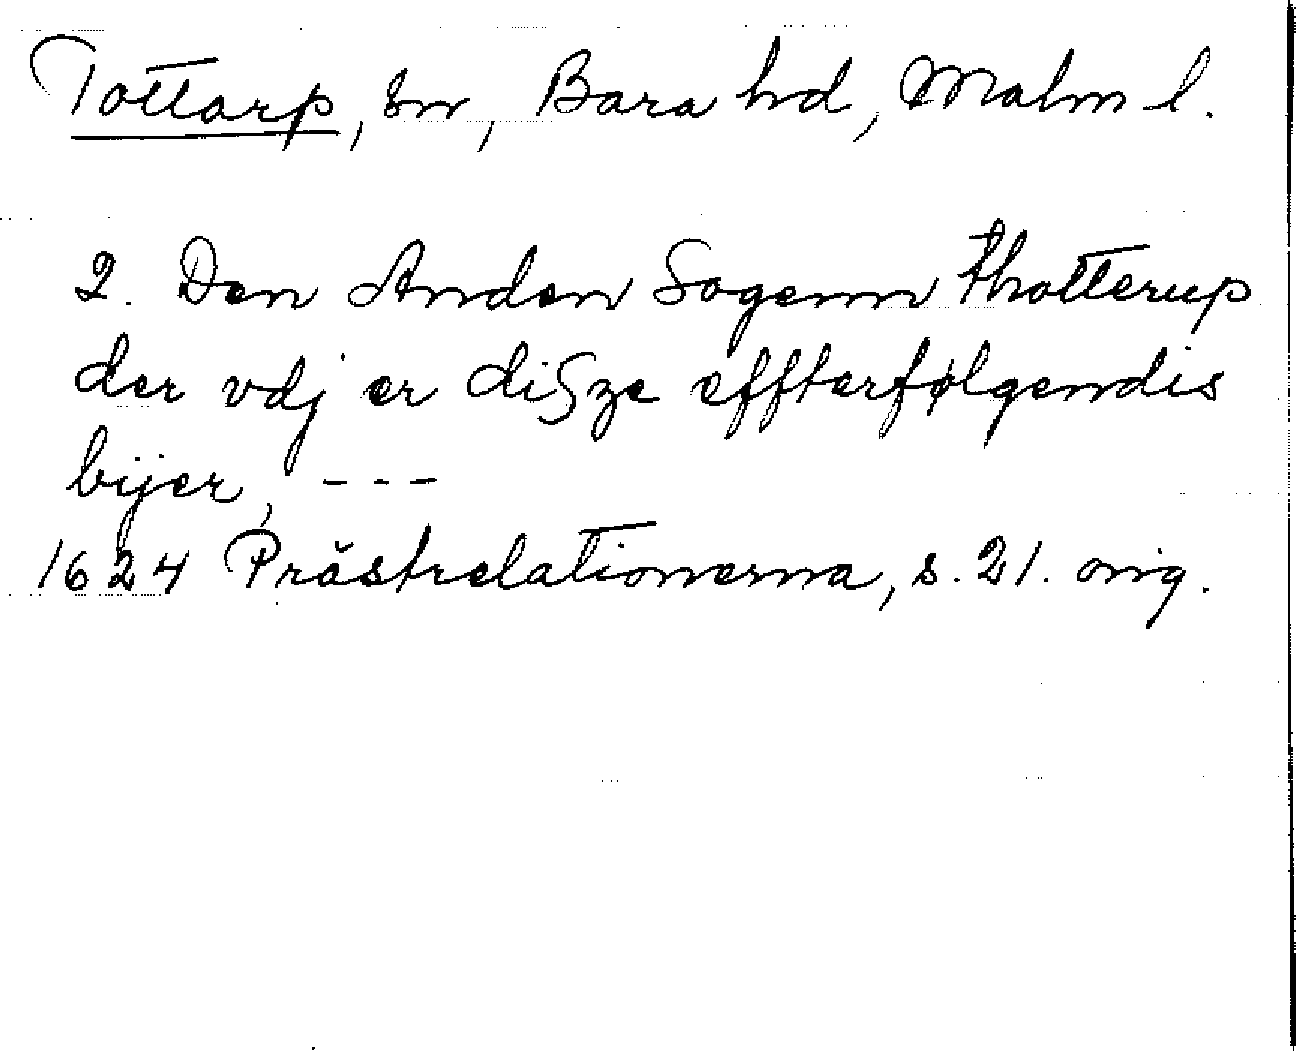 Tottarp, sn, Bara hd, Malm l.
2. Den Anden Sogenn thotterup
der vdj er diſze effterfølgendis
bijer, ---
1624 Prästrelationerna, s. 21. orig.